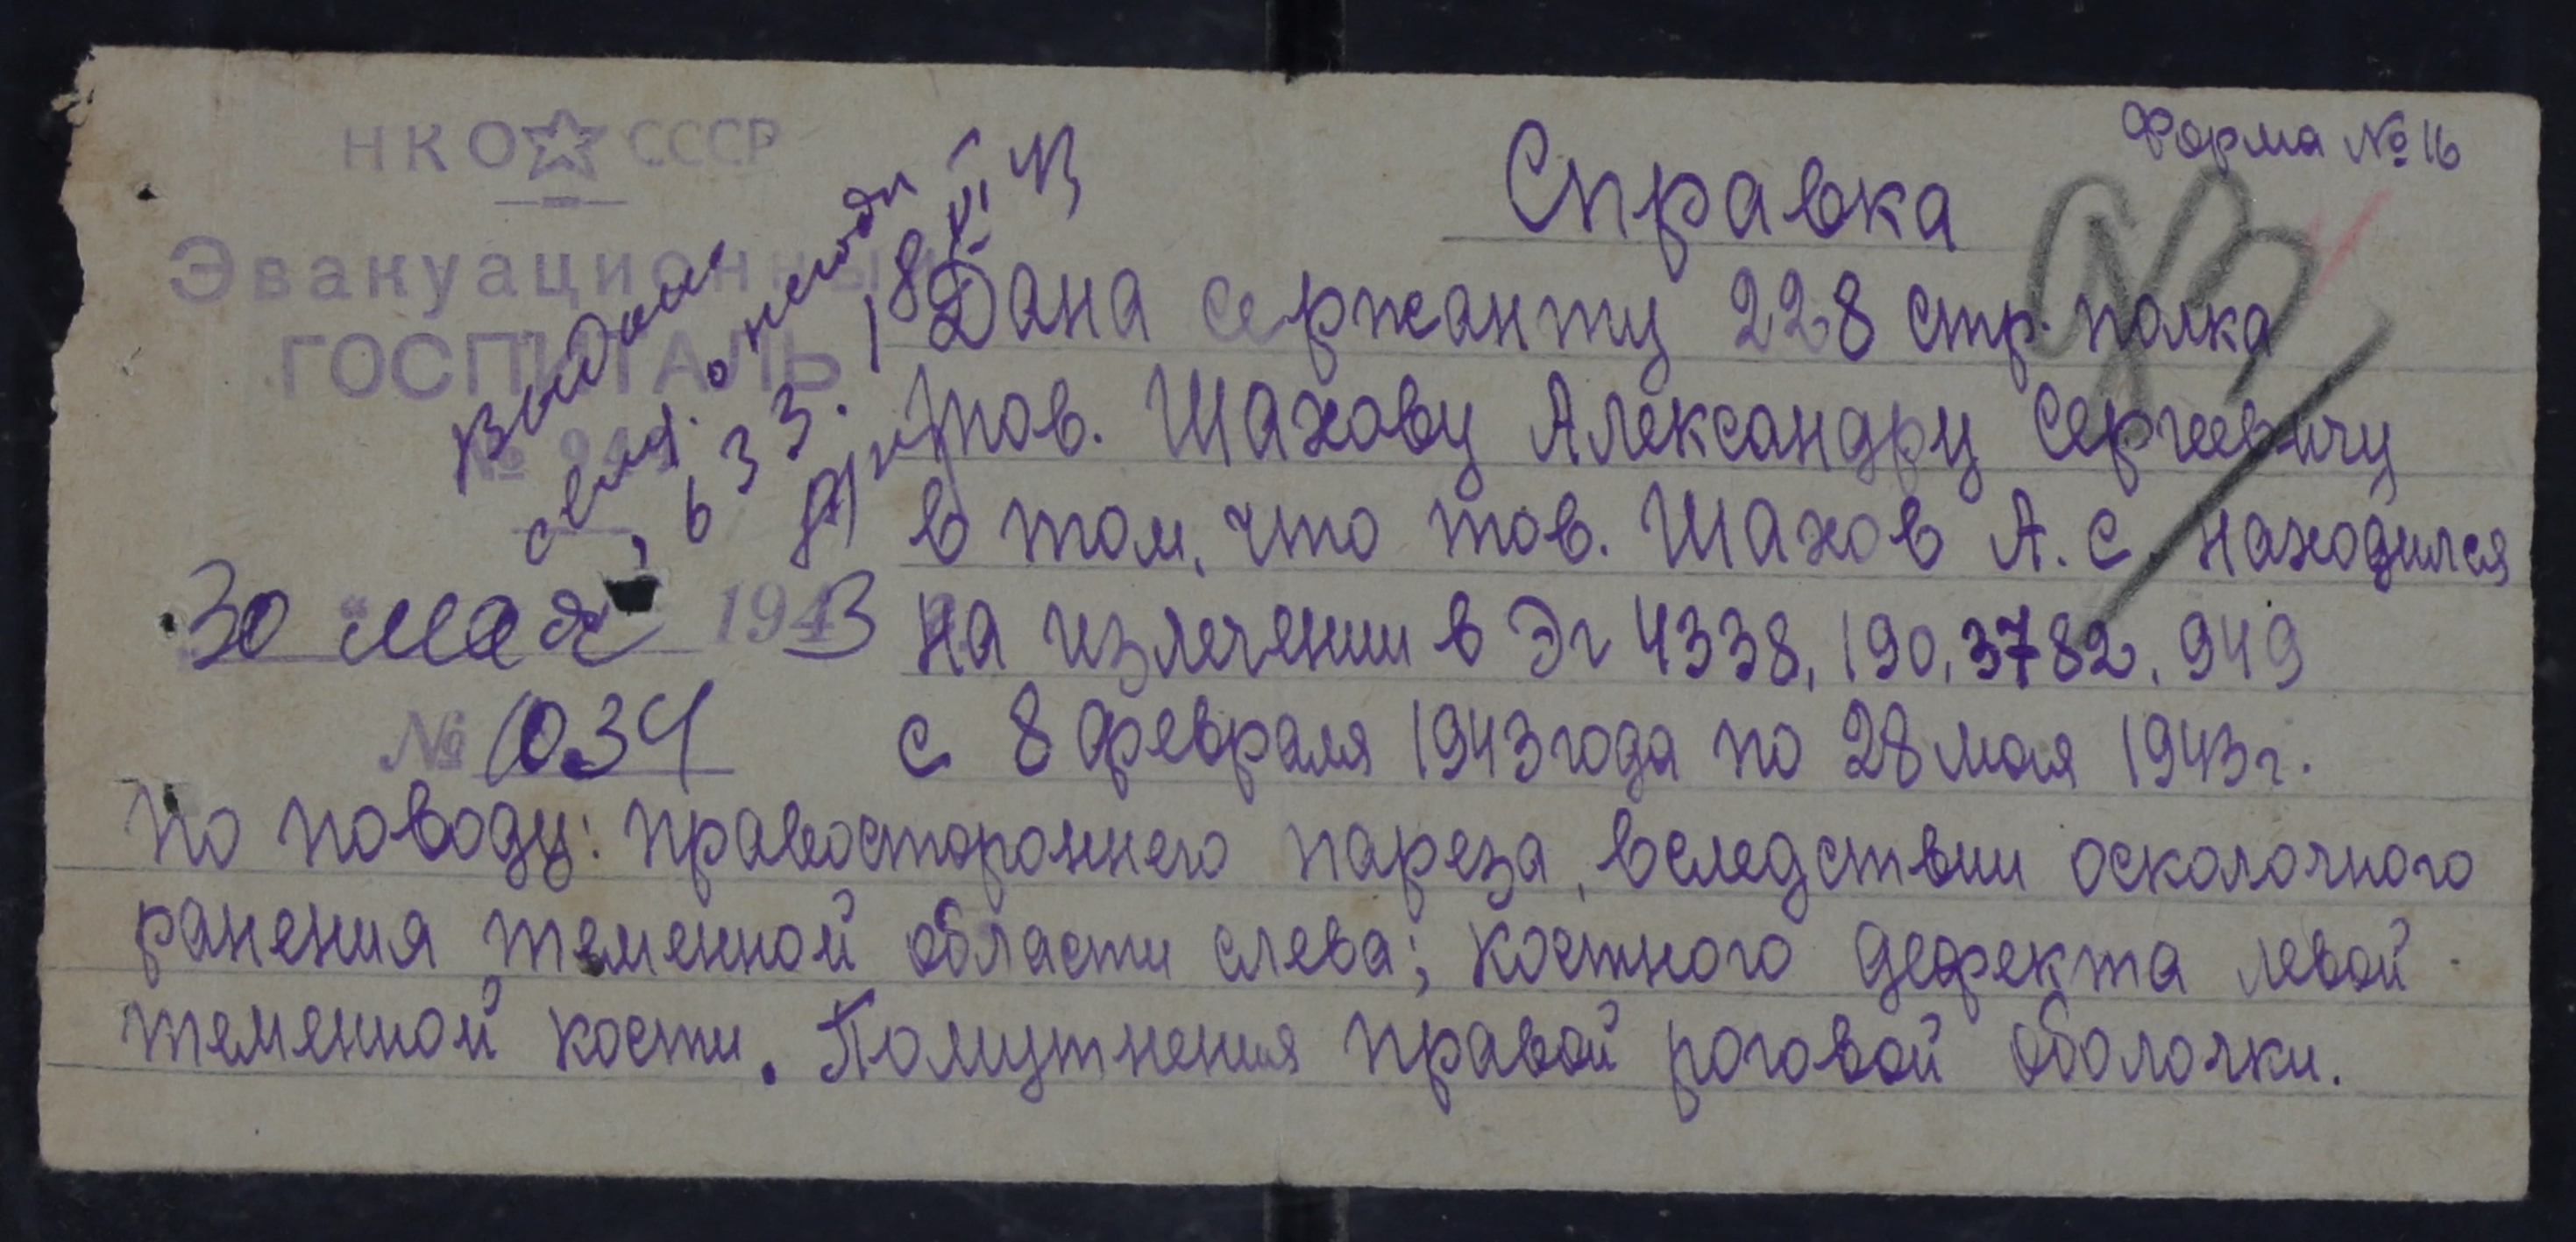 Форма № 16
НКО СССР
Эвакуационный
ГОСПИТАЛЬ
№ 949
30 мая 1943
№ 1034
Выдано
свид. о негодн
633. 18/VI 43
Справка
Дана сержанту 228 стр. полка
тов. Шахову Александру Сергеевичу
в том, что тов. Шахов А. С. находился
на излечении в Эг 4338, 190, 3782, 949
с 8 февраля 1943 года по 28 мая 1943 г.
по поводу: правостороннего пареза, вследствии осколочного
ранения теменной области слева; костного дефекта левой
теменной кости. Помутнения правой роговой оболочки.